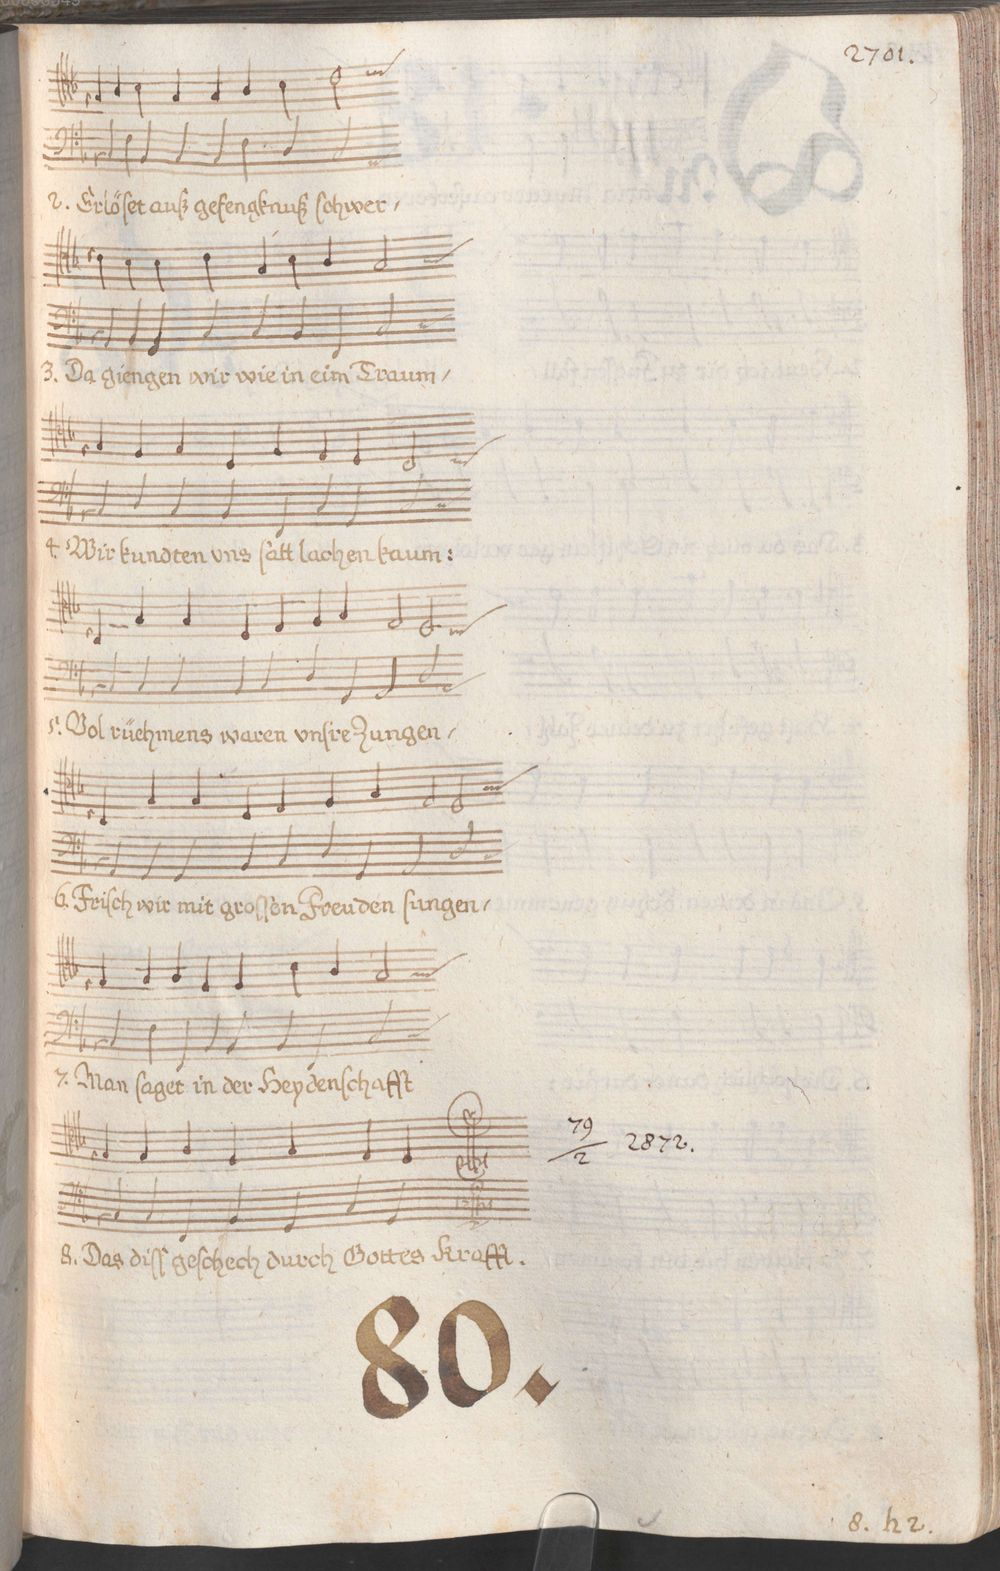 2701.
2. Erlöset auß gefengknuß schwer /
3. Da giengen wir wie in eim Traum /
4. Wir kundten vns satt lachen kaum:
5. Vol rüehmens waren vnsre Zungen /
6. Frisch wir mit grossen Freuden sungen /
7. Man saget in der Heydenschafft
79/2 2872.
8. Das diss geschech durch Gottes Krafft.
80.
8. h 2.